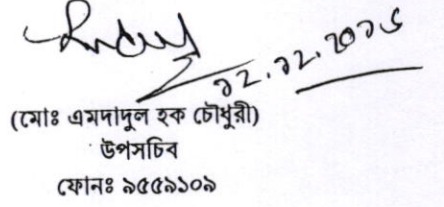 ১২.১২.২০১৬
(মোঃ এমদাদুল হক চৌধুরী)
উপসচিব
ফোনঃ ৯৫৫৯১০৯